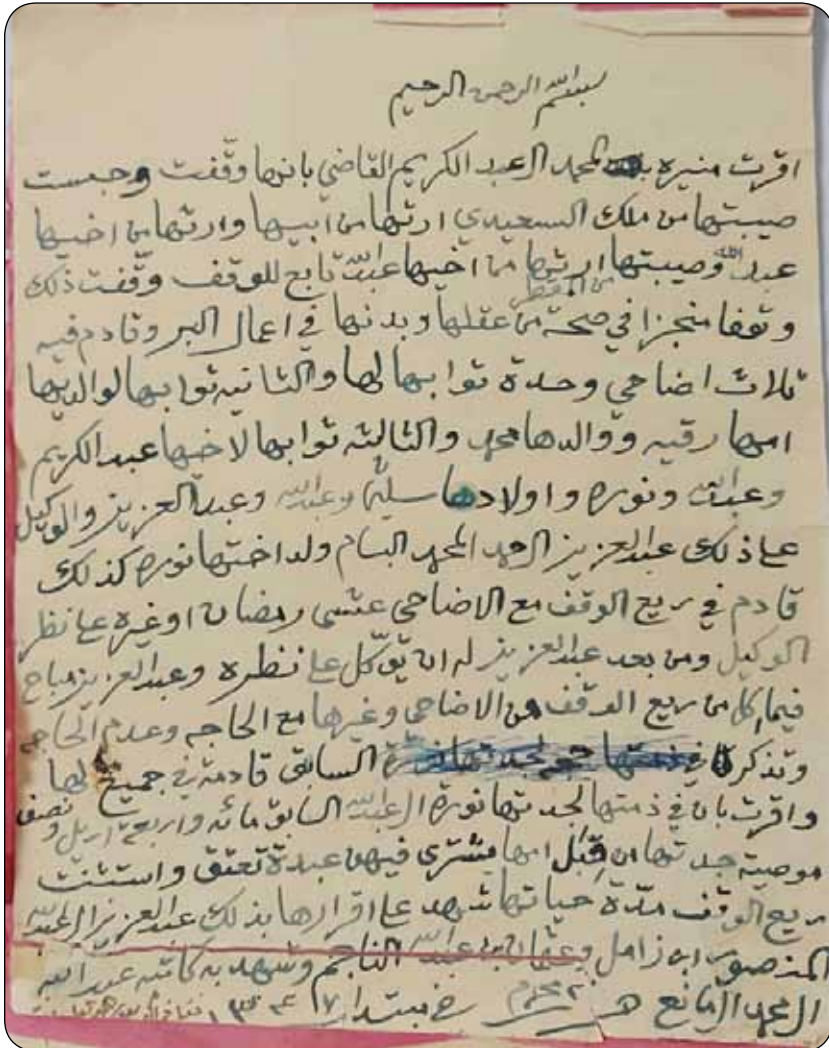 بسم الله الرحمن الرحيم
اقرت منيره المحمد العبد الكريم القاضي بانها وقفت وحبست
صيبتها من ملك السعيدي ارثها من ابيها وارثها من اخيها
عبد الله وصيبتها ارثها من اخيها عبد الله تابع للوقف وقفت ذلك
وقفا منجزا في صحة من عقلها وبدنها في اعمال البر وقادم فيه
ثلاث اضاحي وحدة ثوابها لها والثانيه ثوابها لوالديها
امها رقيه ووالدها محمد والثالثه ثوابها لاخيها عبد الكريم
وعبد الله ونوره واولادها وعبد الله وعبد العزيز والوكيل
على ذلك عبد العزيز الحمد المحمد البسام ولد اختها نوره كذلك
قادم في ريع الوقف مع الاضاحي عشى رمضان او غيره على نظر
الوكيل ومن بعد عبد العزيز له ان يوكل على نظره وعبد العزيز مباح
فيما اكل من ريع الوقف من الاضاحي وغيرها مع الحاجه وعدم الحاجه
وتذكر السابق قادمة في جميع لها
واقرت بان في ذمتها لجدتها نورة العبد الله السابق مائه واربعة اريل ونصف
موصية جدتها من قبل امها يشترى فيهن عبدة تعتق واستثنت
ريع الوقف مدة حياتها شهد على اقرارها بذلك عبد العزيز العبد الله
المنصور ابن زامل وعثمان بن عبد الله الناجم وشهد به كاتبه عبد الله
المحمد المانع